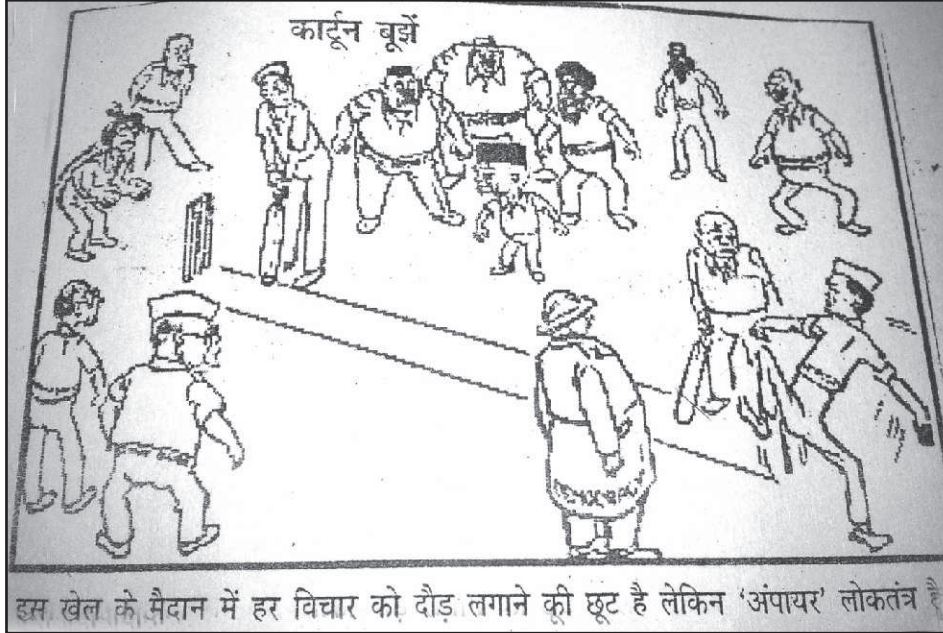 कार्टून बूझें
DEMOCRACY
इस खेल के मैदान में हर विचार को दौड़ लगाने की छूट है लेकिन 'अंपायर' लोकतंत्र है